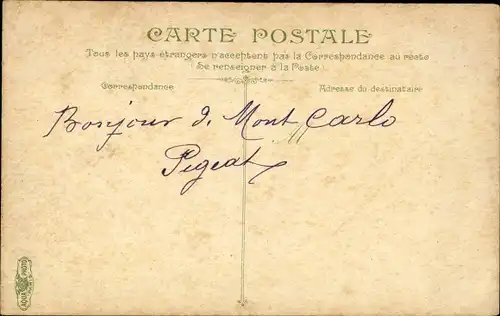 CARTE POSTALE
Tous les pays étrangers n'acceptent pas la Correspondance au recto
(Se renseigner à la Poste)
Correspondance
Adresse du destinataire
Bonjour de Mont Carlo
Pigeat
AQUA PHOTO
PARIS